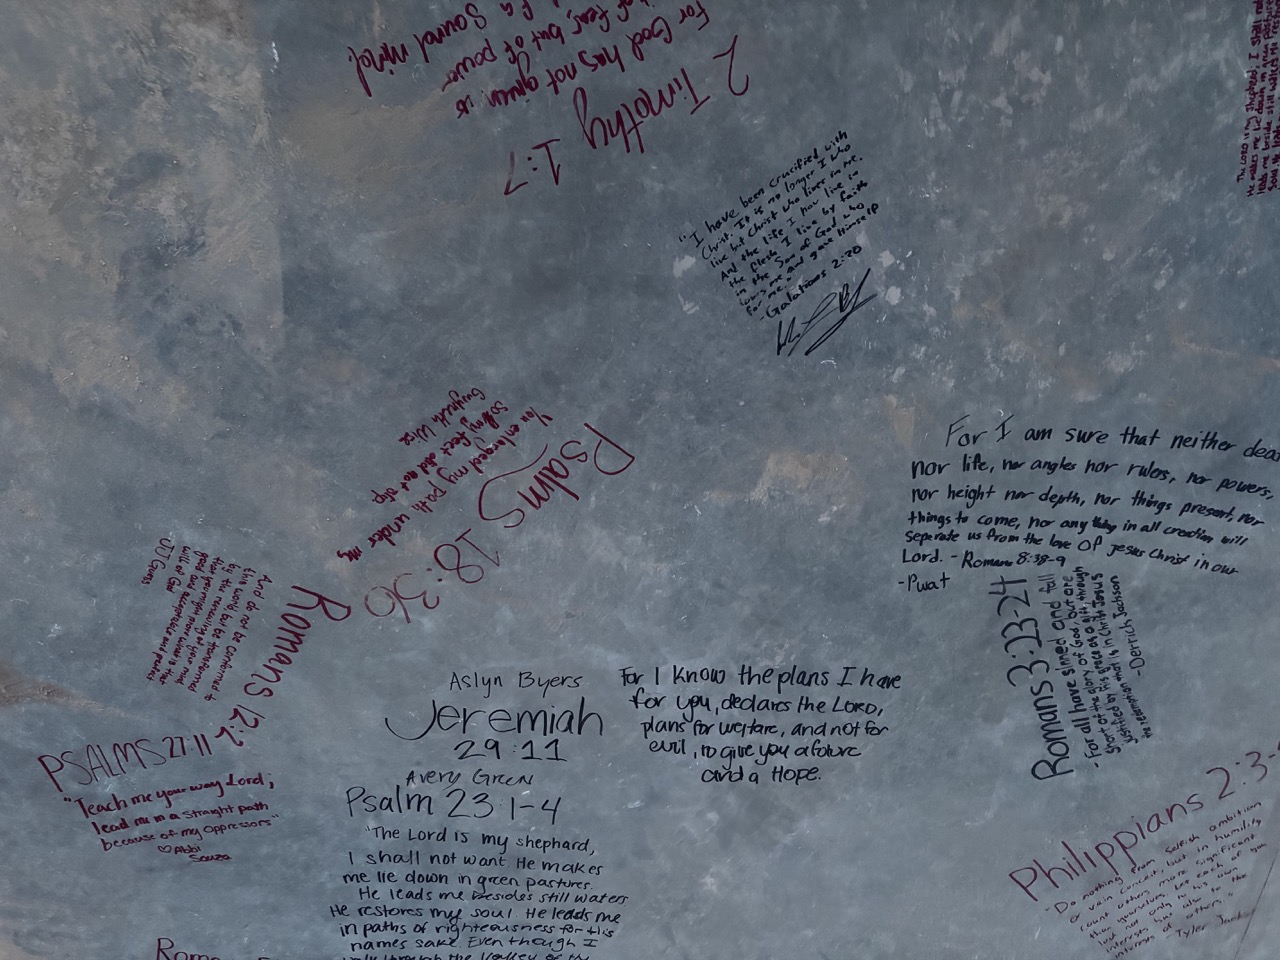 2 Timothy
1:7
For God has not given us
of fear, but of power
Sound mind.
"I have been crucified with
Christ. It is no longer I who
live but Christ who lives in me.
And the life I now live in
the flesh I live by faith
in the Son of God who
loves me and gave Himself
for me."
-Galatians 2:20
The LORD is my Shepherd; I shall not
He makes me lie down in green pastures
leads me beside still waters He
Psalms
18:36
You enlarged my path under me
so my feet did not slip
Gwyneth Wise
For I am sure that neither dea
nor life, nor angles nor rulers, nor powers,
nor height nor depth, nor things present, nor
things to come, nor any thing in all creation will
seperate us from the love of Jesus Christ in our
Lord. - Romans 8:38-9
-Pwat
Romans 12:2
And do not be conformed to
this world, but be transformed
by the renewing of your mind
that you might prove what is that
good and acceptable and perfect
will of God
Romans 3:23-24
-For all have sinned and fall
short of the glory of God, but are
justified by his grace as a gift, through
the redemption that is in Christ Jesus
-Derrick Jackson
PSALMS 27:11
"Teach me your way Lord;
lead me in a straight path
because of my oppressors"
♡Abbi
Souza
Aslyn Byers
Jeremiah
29:11
For I Know the plans I have
for you, declares the LORD,
plans for welfare, and not for
evil, to give you a future
and a Hope.
Avery Green
Psalm 23 1-4
"The Lord is my shephard,
I shall not want. He makes
me lie down in green pastures.
He leads me besides still waters
He restores my soul. He leads me
in paths of righteousness for his
names sake. Even though I
walk through the Valley of the
Philippians 2:3-
-Do nothing from selfish ambition
or vain conceit, but in humility
count others more significant
than yourselves. Let each of you
look not only to his own
interests but also to the
interests of others."
-Tyler
Roma